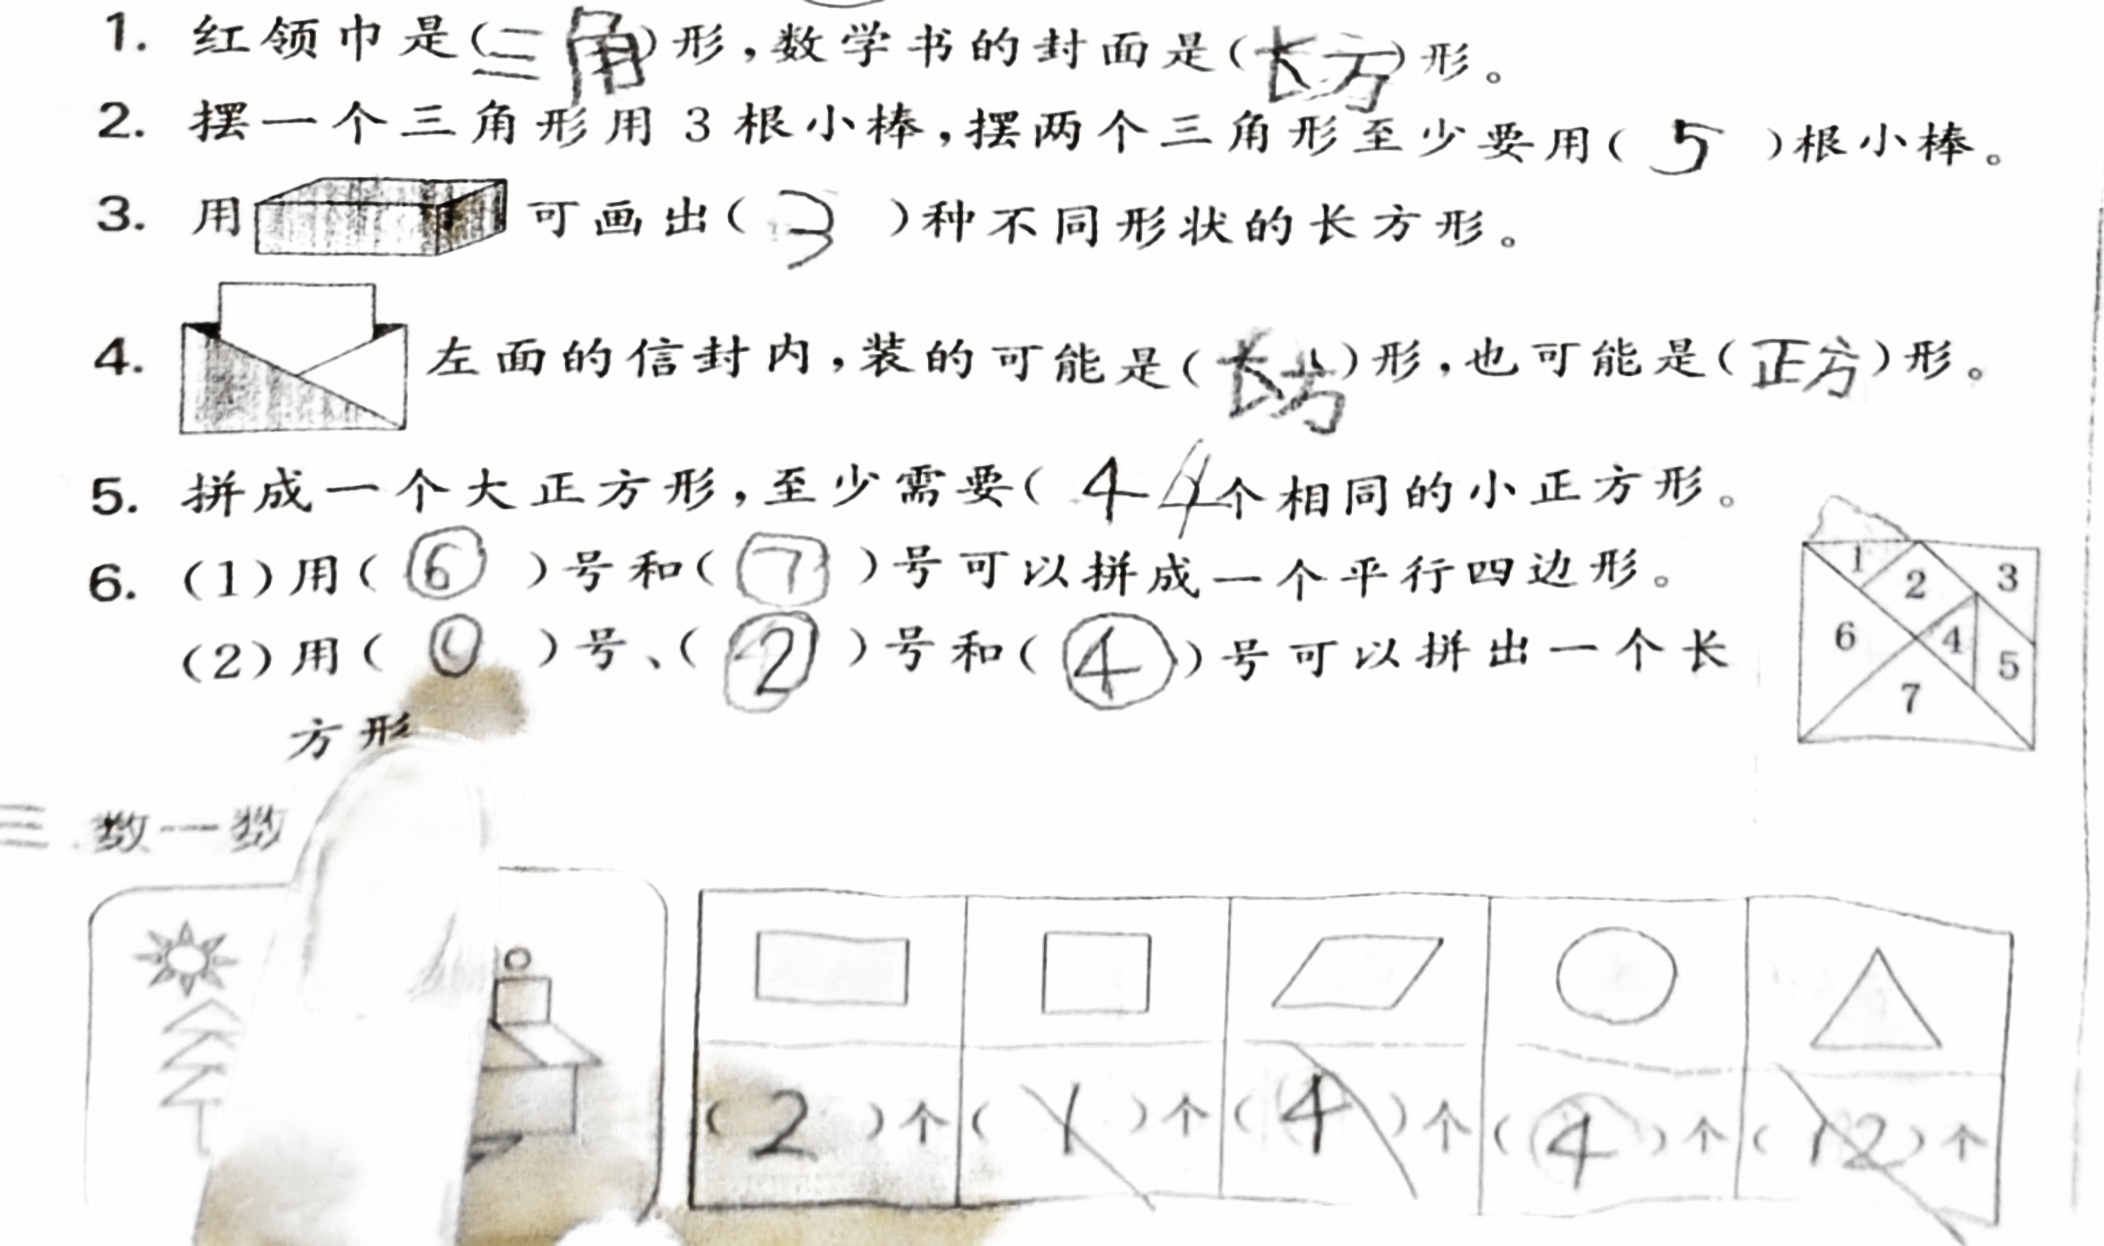 1. 红领巾是(三角)形,数学书的封面是(长方)形。
2. 摆一个三角形用3根小棒,摆两个三角形至少要用( 5 )根小棒。
3. 用 可画出( 3 )种不同形状的长方形。
4. 左面的信封内,装的可能是(长方)形,也可能是(正方)形。
5. 拼成一个大正方形,至少需要( 4 个相同的小正方形。
6. (1)用( ⑥ )号和( ⑦ )号可以拼成一个平行四边形。
(2)用( )号、( ② )号和( ④ )号可以拼出一个长
方形
1 2 3 4 5 6 7
三 数一数
( 2 )个 ( 1 )个 ( 4 )个 ( 4 )个 ( 12 )个